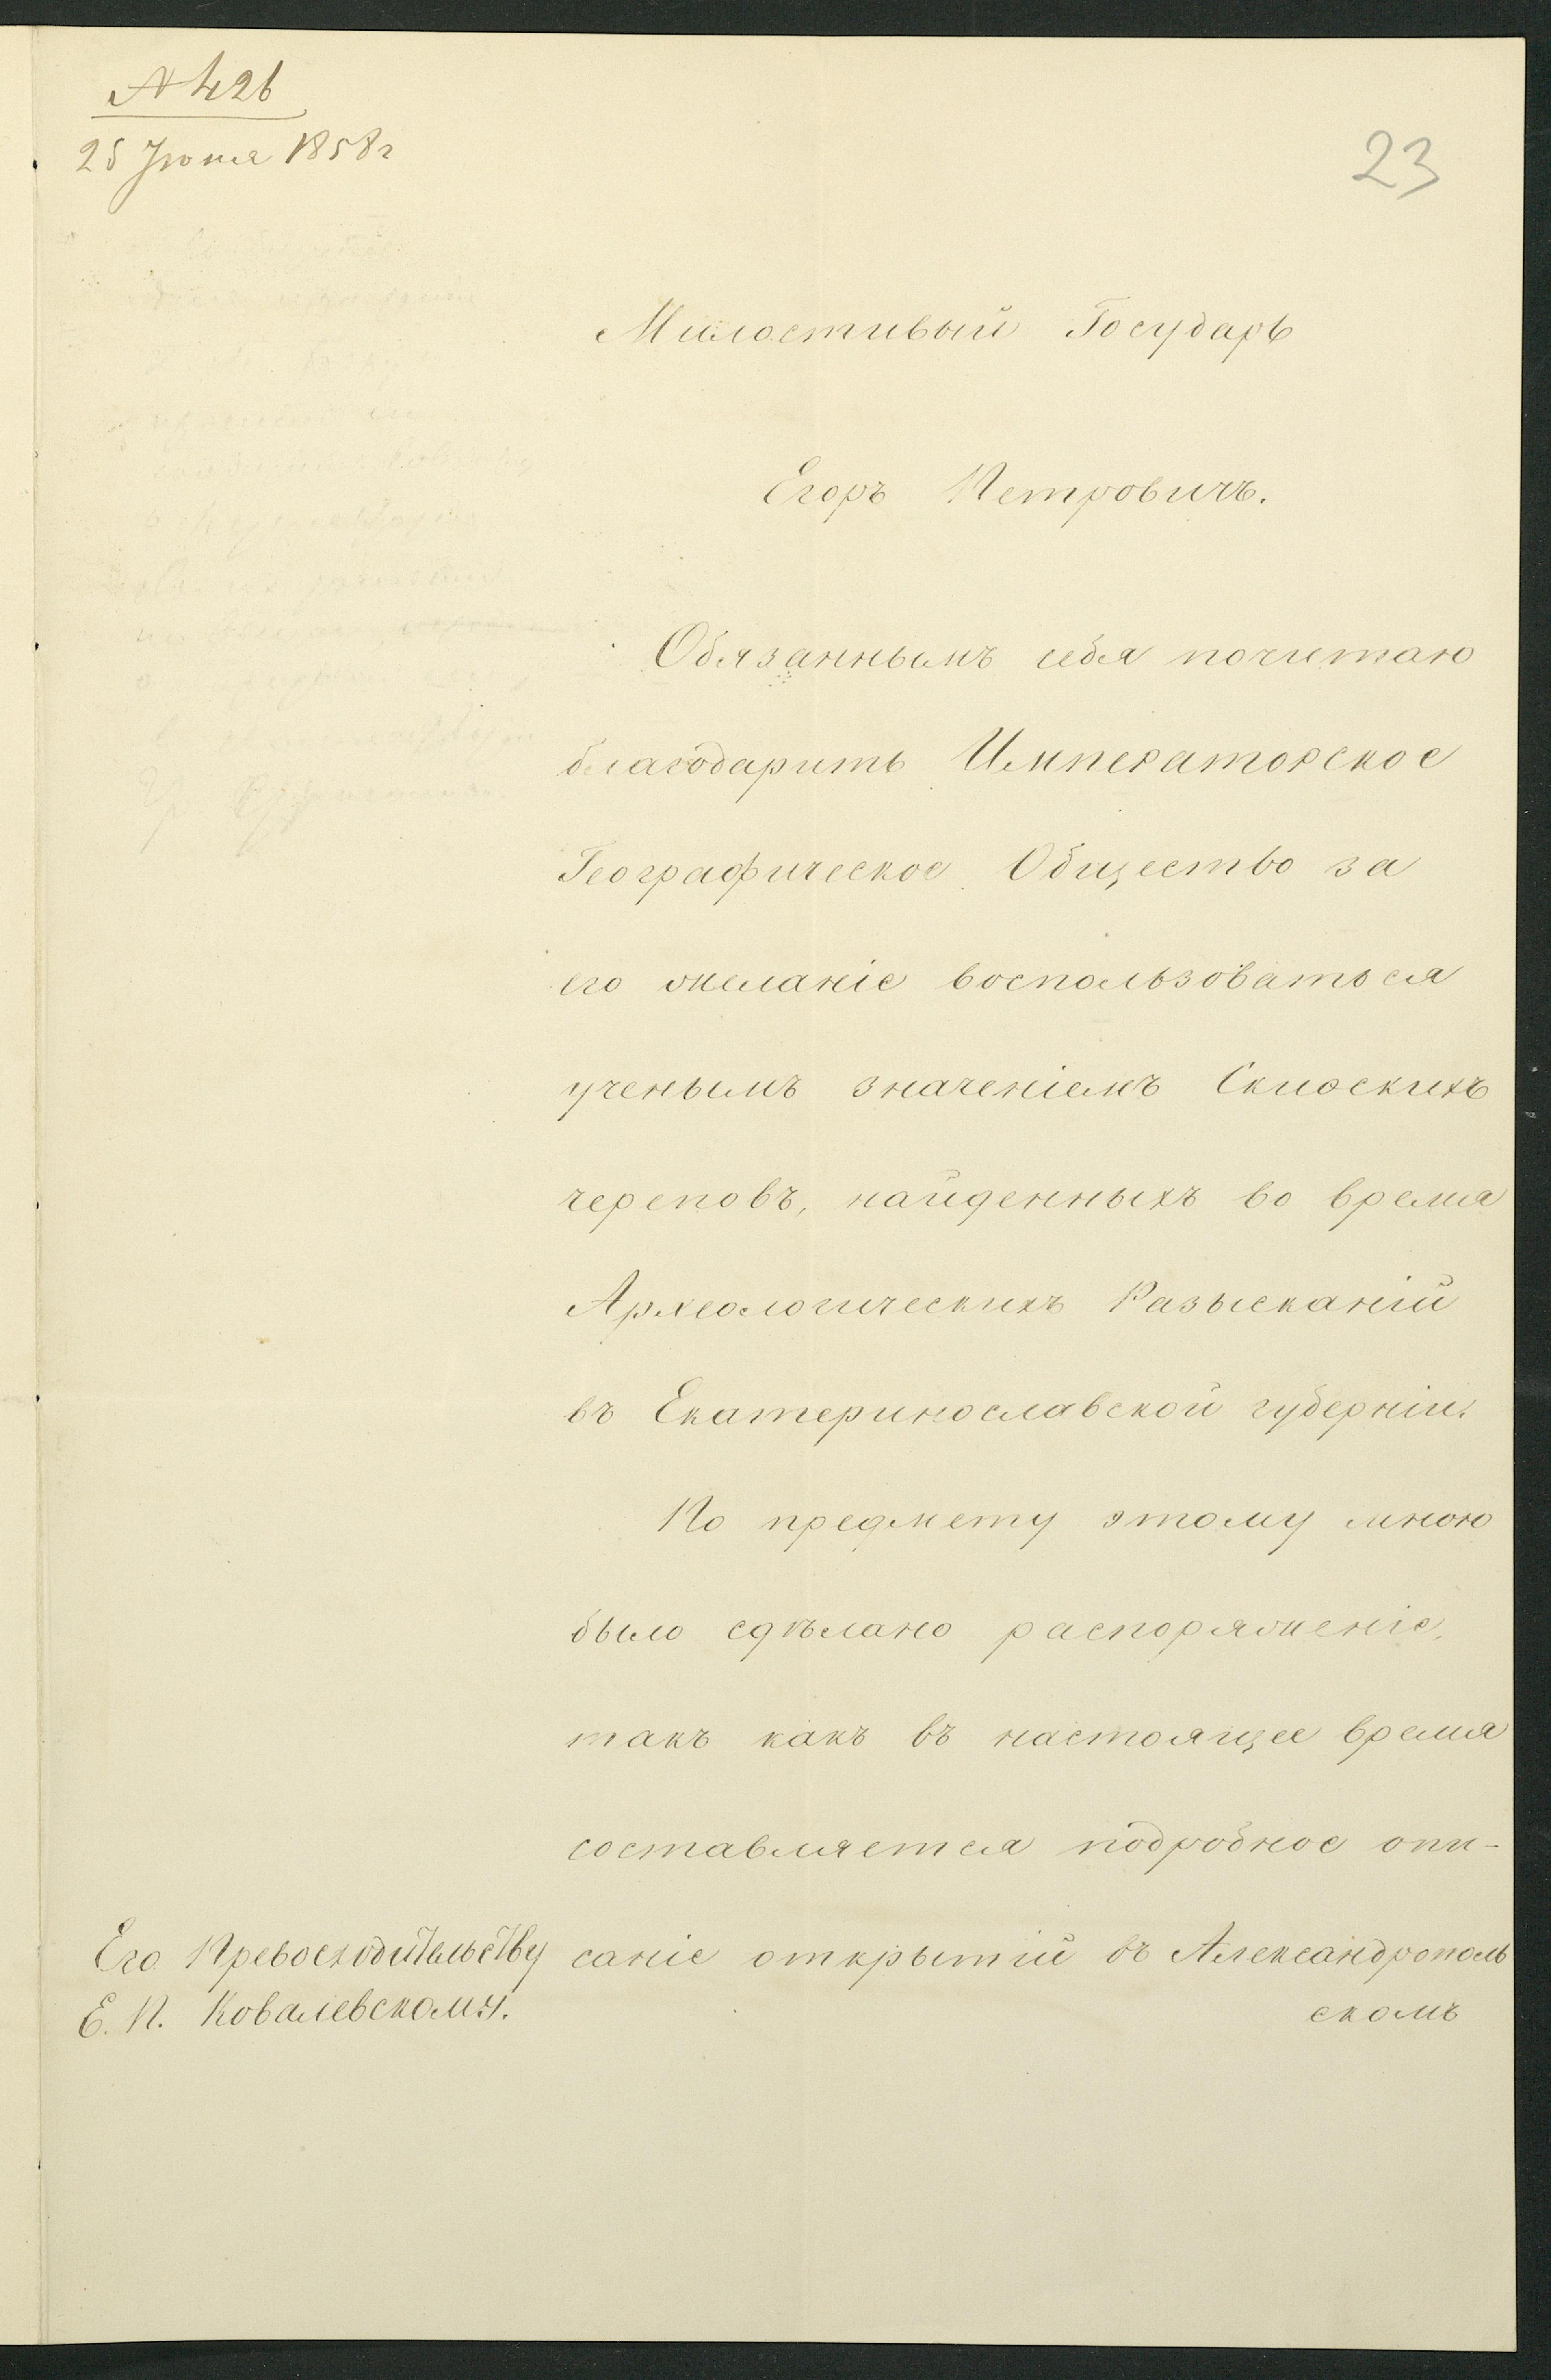 № 426
25 Іюня 1858 г
23
Милостивый Государь
Егоръ Петровичъ.
Обязаннымъ себя почитаю
благодарить Императорское
Географическое Общество за
его желаніе воспользоваться
ученымъ значеніемъ Скиѳскихъ
череповъ, найденныхъ во время
Археологическихъ Разысканій
въ Екатеринославской губерніи.
По предмету этому мною
было сдѣлано распоряженіе,
такъ какъ въ настоящее время
составляется подробное опи-
саніе открытій въ Александрополь
скомъ
Его Превосходительству
Е. П. Ковалевскому.